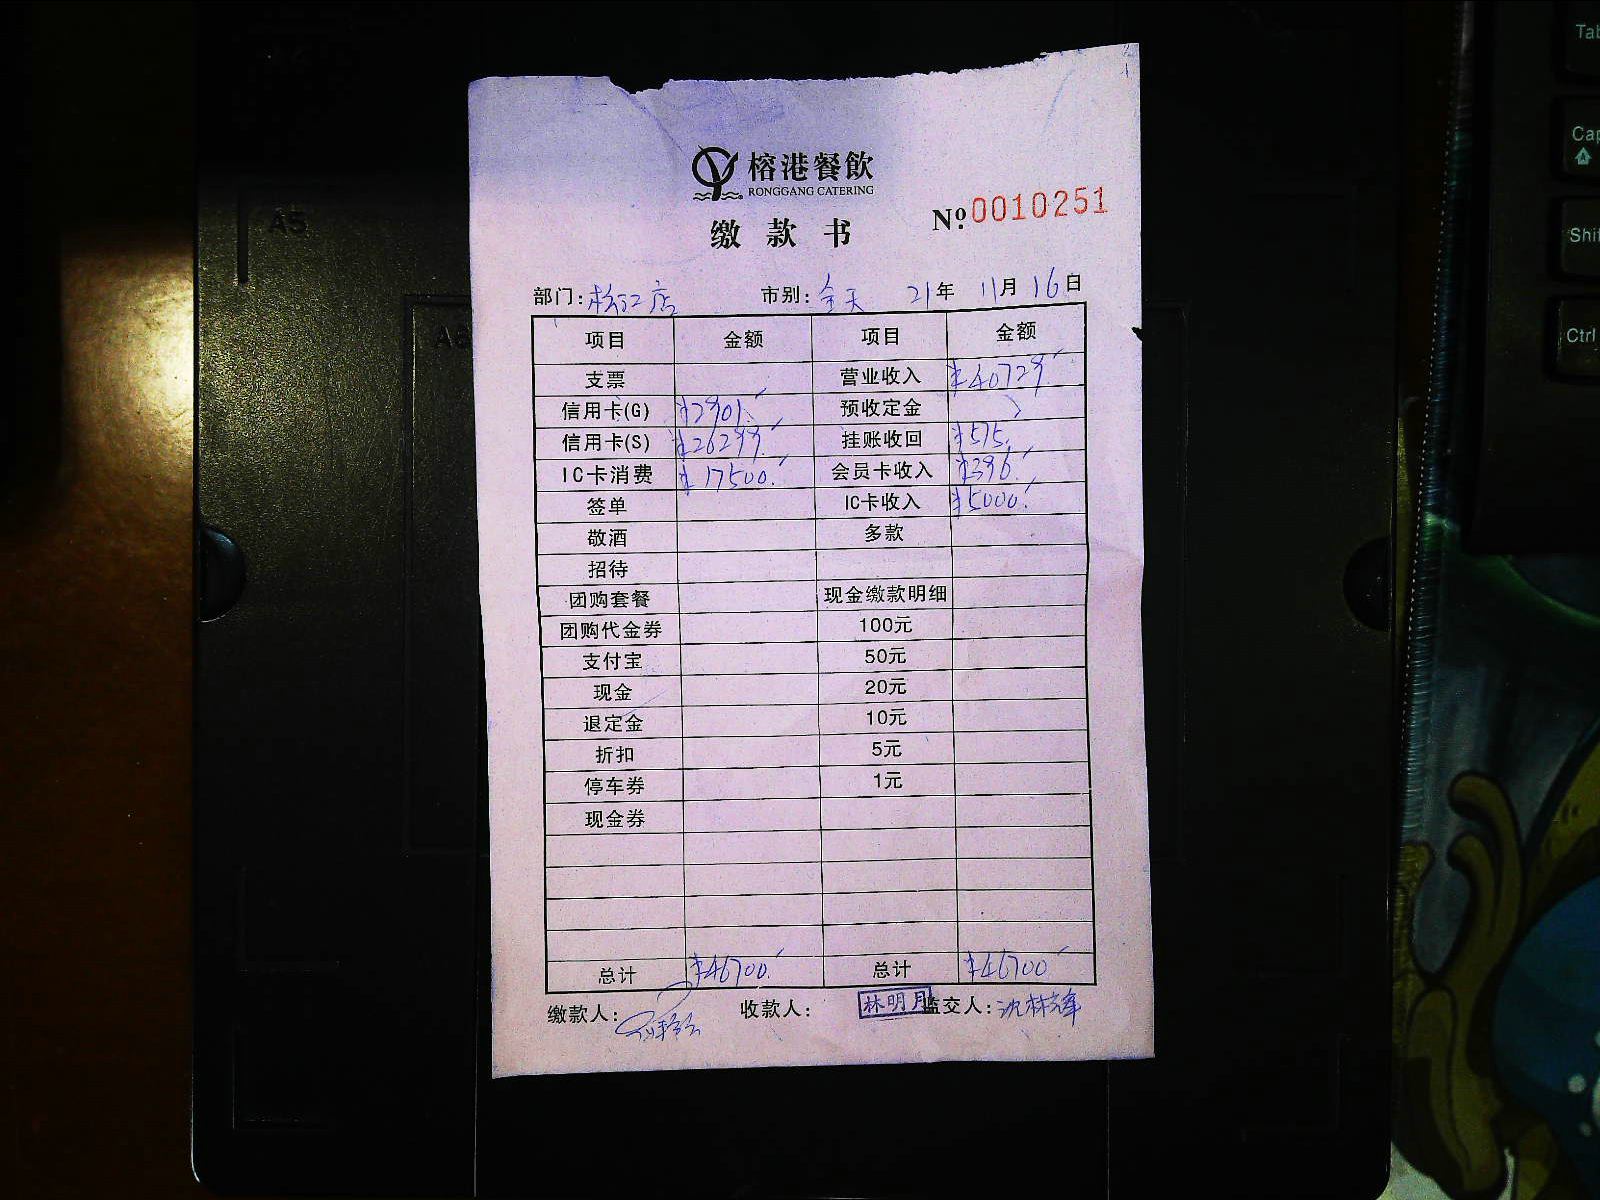 榕港餐飲
RONGGANG CATERING
缴款书
Nº 0010251
部门: 松江店 市别: 全天 21年 11月 16日
项目 金额 项目 金额
支票 营业收入 ¥40729
信用卡(G) ¥2901 预收定金
信用卡(S) ¥26299 挂账收回 ¥575
IC卡消费 ¥17500 会员卡收入 ¥396
签单 IC卡收入 ¥5000
敬酒 多款
招待
团购套餐 现金缴款明细
团购代金券 100元
支付宝 50元
现金 20元
退定金 10元
折扣 5元
停车券 1元
现金券
总计 ¥46700 总计 ¥46700
缴款人: 收款人: 林明月 监交人:
A5
Ctrl